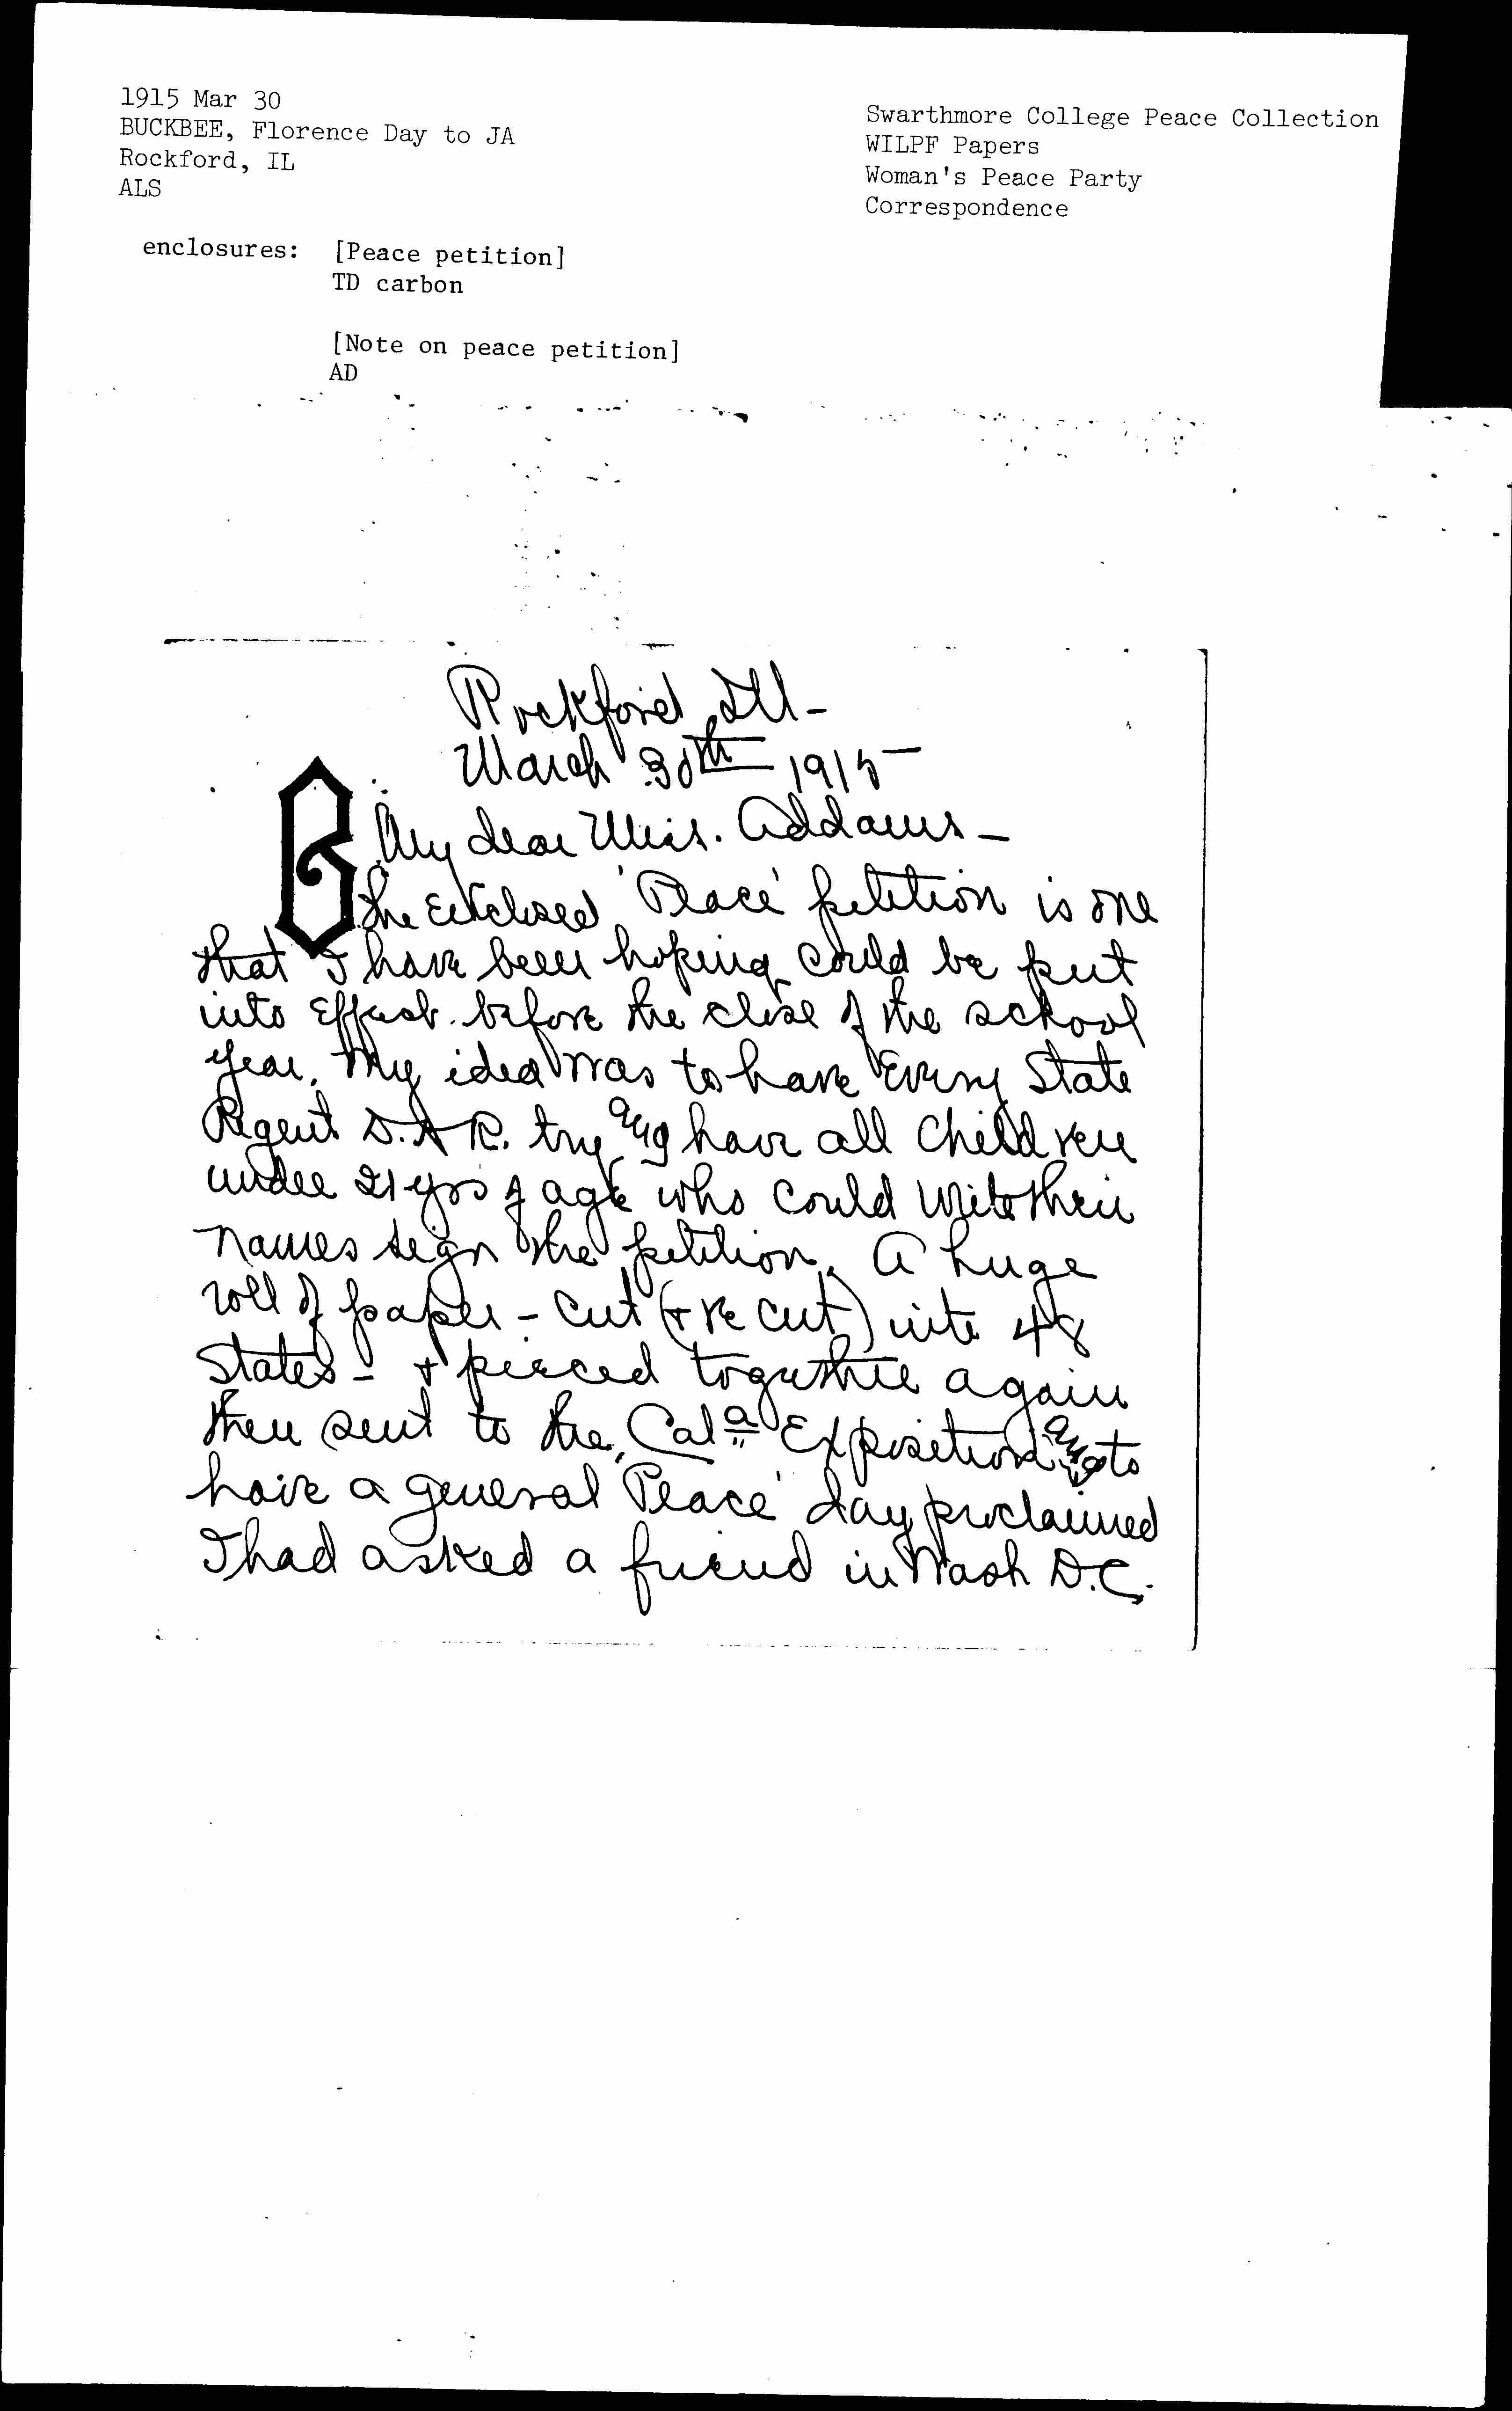 1915 Mar 30
BUCKBEE, Florence Day to JA
Rockford, IL
ALS
Swarthmore College Peace Collection
WILPF Papers
Woman's Peace Party
Correspondence
enclosures: [Peace petition]
TD carbon
[Note on peace petition]
AD
Rockford, Ill-
March 30th 1915-
B
My dear Miss. Addams-
The Enclosed 'Peace' petition is one
that I have been hoping could be put
into Effect. before the close of the school
year. My idea was to have Every State
Regent D.A.R. try and have all Children
under 21 yrs of age who could write their
names sign the petition. A huge
roll of paper - cut (& re cut) into 48
States - & pieced together again
then sent to the, Cala Exposition and to
have a general 'Peace' day proclaimed
I had asked a friend in Wash D.C.